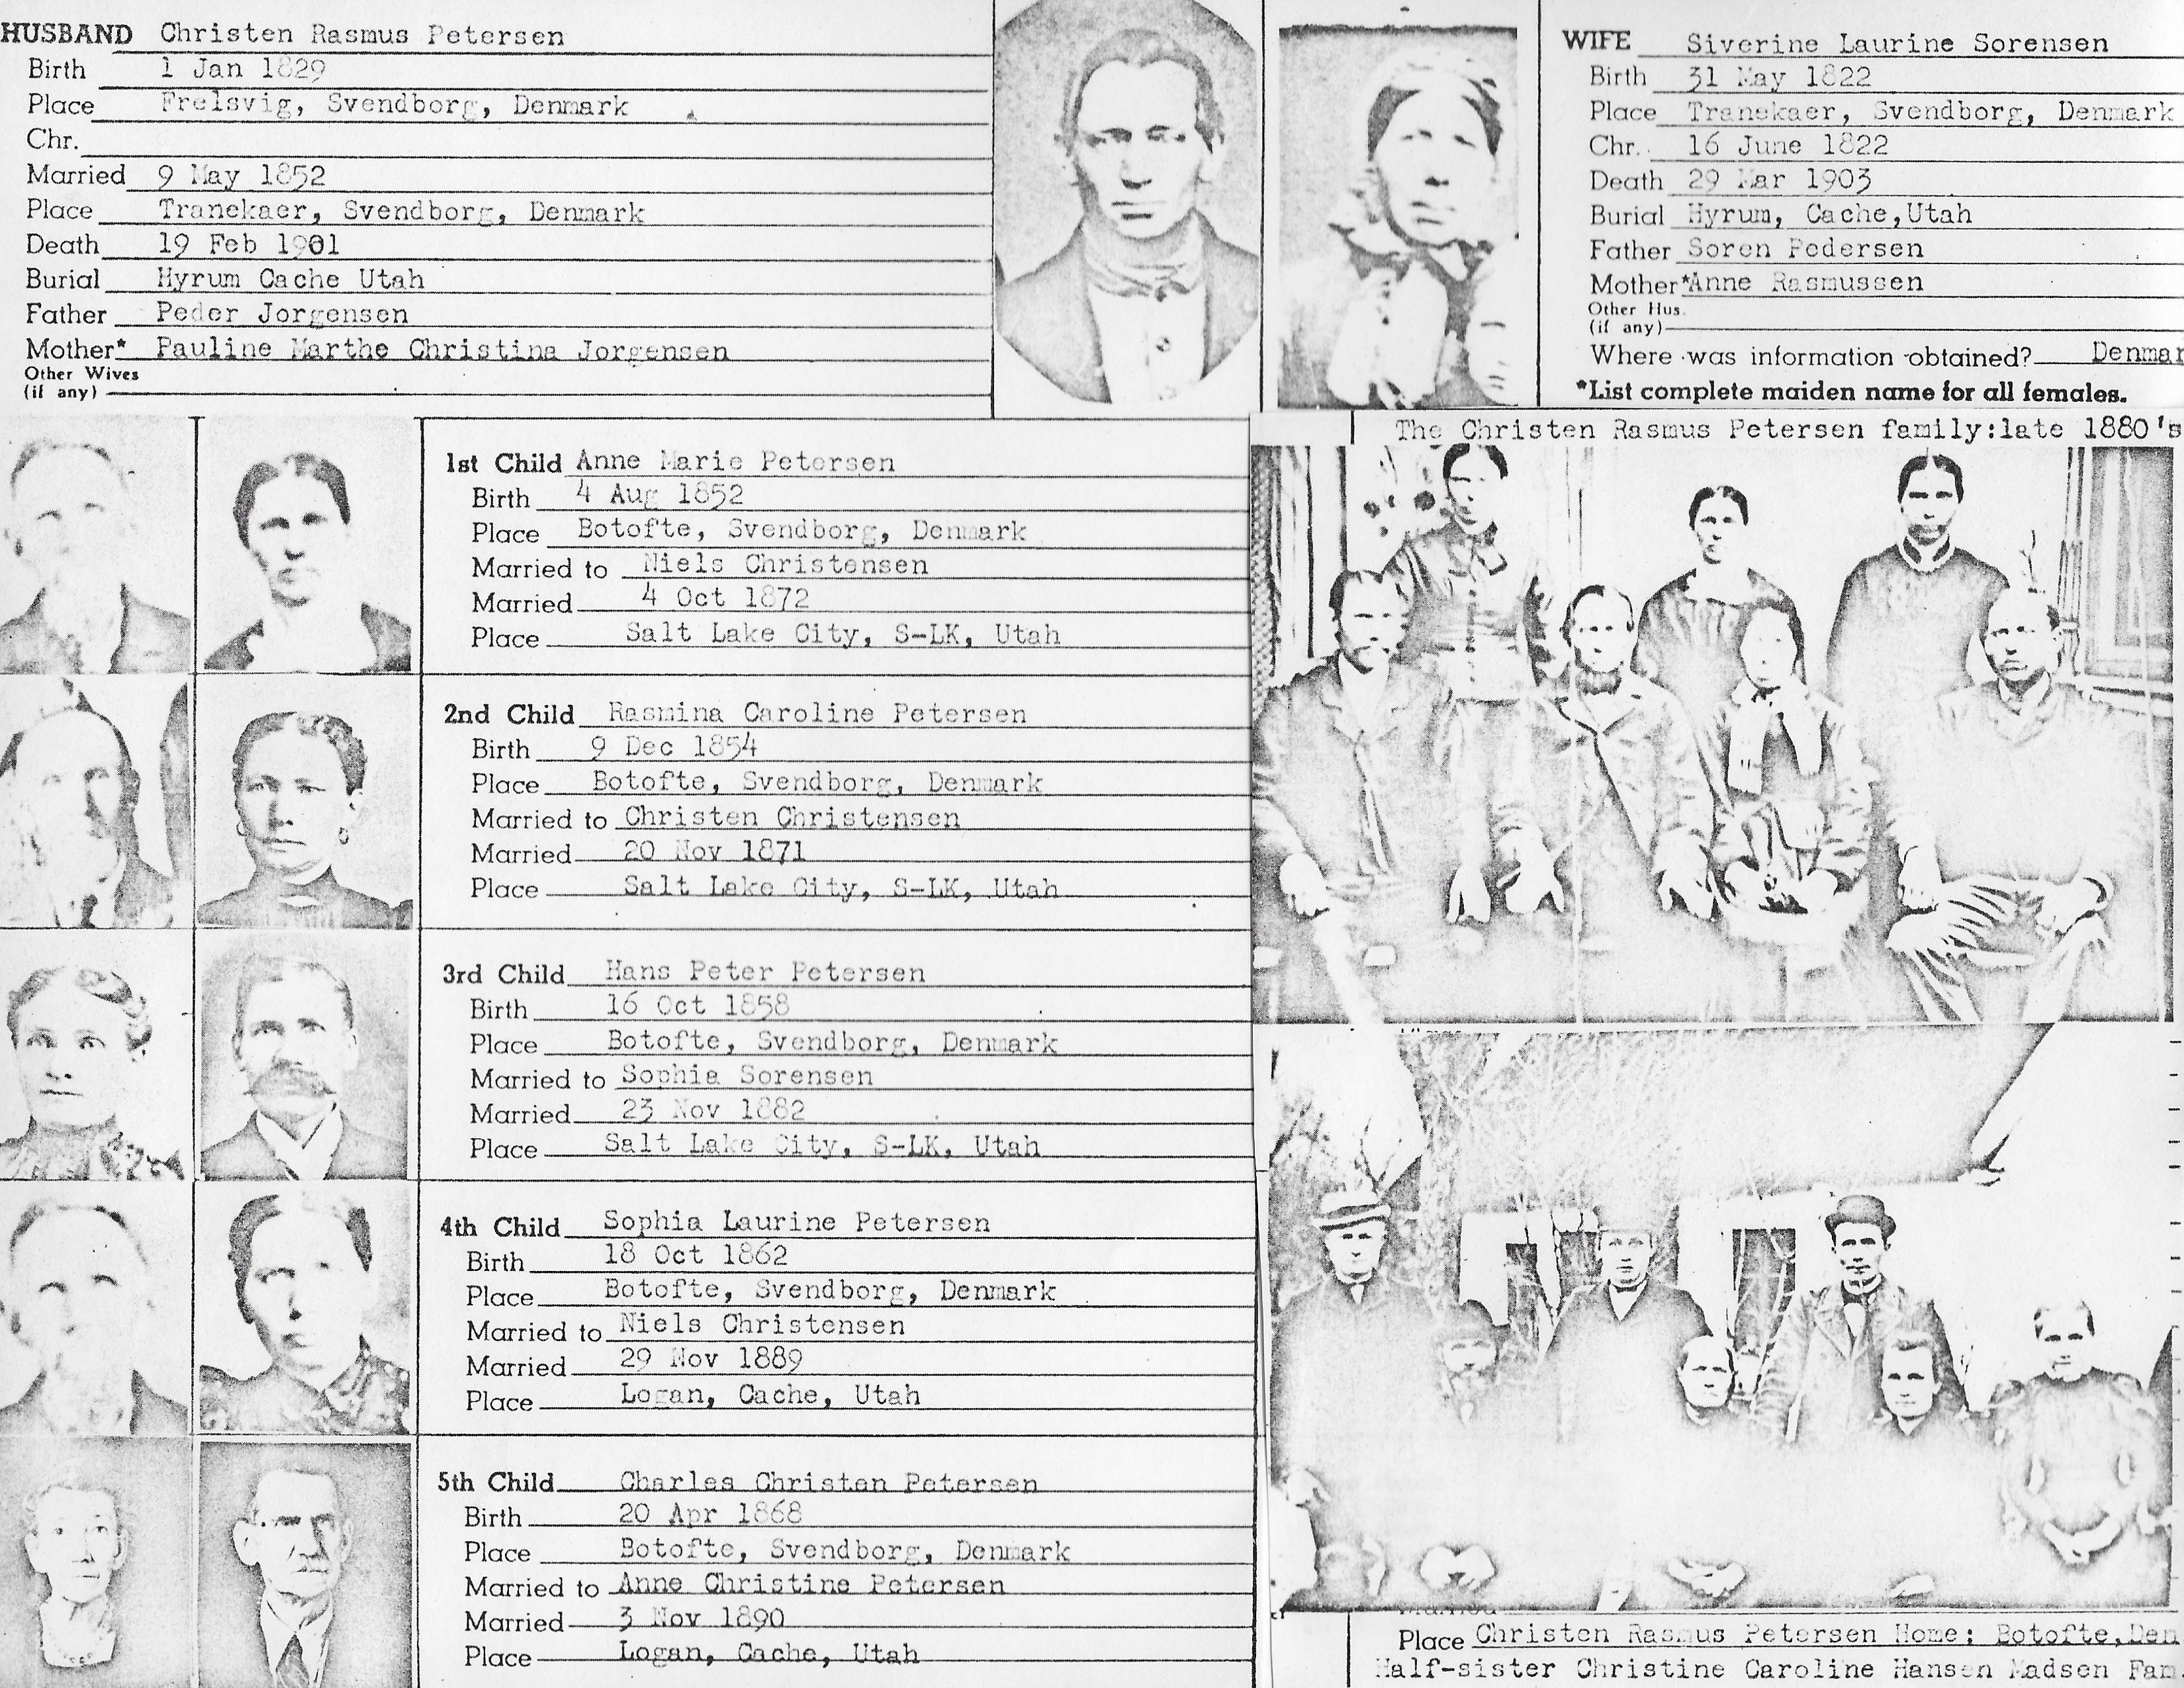 HUSBAND Christen Rasmus Petersen
Birth 1 Jan 1829
Place Frelsvig, Svendborg, Denmark
Chr.
Married 9 May 1852
Place Tranekaer, Svendborg, Denmark
Death 19 Feb 1901
Burial Hyrum Cache Utah
Father Peder Jorgensen
Mother* Pauline Marthe Christina Jorgensen
Other Wives
(if any)
WIFE Siverine Laurine Sorensen
Birth 31 May 1822
Place Tranekaer, Svendborg, Denmark
Chr. 16 June 1822
Death 29 Mar 1903
Burial Hyrum, Cache,Utah
Father Soren Pedersen
Mother*Anne Rasmussen
Other Hus.
(if any)
Where was information obtained? Denmar
*List complete maiden name for all females.
1st Child Anne Marie Petersen
Birth 4 Aug 1852
Place Botofte, Svendborg, Denmark
Married to Niels Christensen
Married 4 Oct 1872
Place Salt Lake City, S-LK, Utah
2nd Child Rasmina Caroline Petersen
Birth 9 Dec 1854
Place Botofte, Svendborg, Denmark
Married to Christen Christensen
Married 20 Nov 1871
Place Salt Lake City, S-LK, Utah
3rd Child Hans Peter Petersen
Birth 16 Oct 1858
Place Botofte, Svendborg, Denmark
Married to Sophia Sorensen
Married 23 Nov 1882
Place Salt Lake City, S-LK, Utah
4th Child Sophia Laurine Petersen
Birth 18 Oct 1862
Place Botofte, Svendborg, Denmark
Married to Niels Christensen
Married 29 Nov 1889
Place Logan, Cache, Utah
5th Child Charles Christen Petersen
Birth 20 Apr 1868
Place Botofte, Svendborg, Denmark
Married to Anne Christine Petersen
Married 3 Nov 1890
Place Logan, Cache, Utah
The Christen Rasmus Petersen family:late 1880's
Place Christen Rasmus Petersen Home: Botofte,Den
Half-sister Christine Caroline Hansen Madsen Fam.